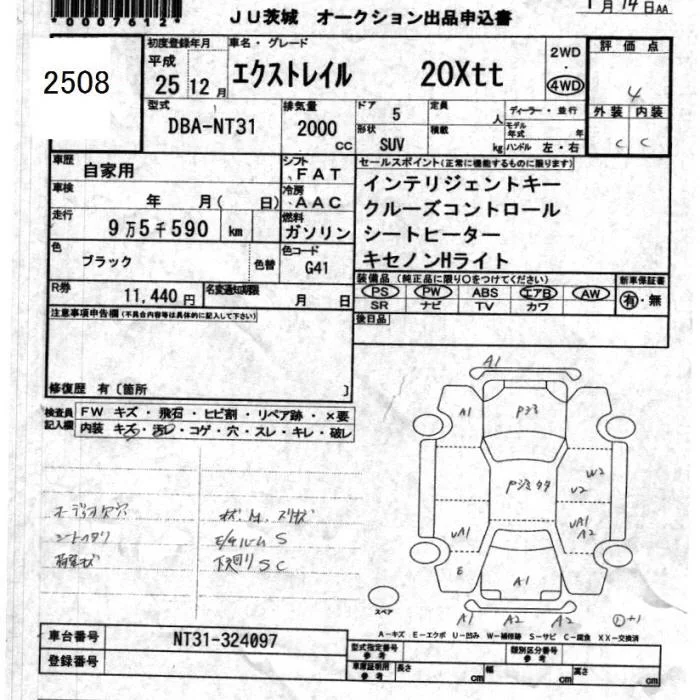 *0007612*
JU茨城 オークション出品申込書
1月14日AA
2508
初度登録年月
平成
25 12月
車名・グレード
エクストレイル 20Xtt
2WD
・
4WD
評価点
4
外装 内装
C C
型式
DBA-NT31
排気量
2000
CC
ドア 5
形状 SUV
定員 人
積載 kg
ディーラー・並行
モデル年式 年
ハンドル 左・右
車歴
自家用
シフト
FAT
車検
年 月( 日)
冷房
AAC
走行
9万5千590 km
燃料
ガソリン
色
ブラック
色替
色コード
G41
R券
11,440円
名変通知期限
月 日
セールスポイント(正常に機能するものに限ります)
インテリジェントキー
クルーズコントロール
シートヒーター
キセノンHライト
装備品(純正品に限り○をつけてください)
PS PW ABS エアB AW
SR ナビ TV カワ
新車保証書
有・無
後日品
注意事項申告欄(不具合内容等は具体的に記入して下さい)
修復歴 有〔箇所 〕
検査員
記入欄
FW キズ・飛石・ヒビ割・リペア跡・×要
内装 キズ・汚レ・コゲ・穴・スレ・キレ・破レ
オーディオ欠穴
シートヘタリ
荷室状
下廻りSC
A1
A1
W2
A1
A2
E
A1
A1 A2 A2
スペア
A-キズ E-エクボ U-凹み W-補修跡 S-サビ C-腐食 XX-交換済
車台番号
NT31-324097
登録番号
型式指定番号
参考
類別区分番号
参考
車庫証明用
参考
長さ cm
幅 cm
高さ cm